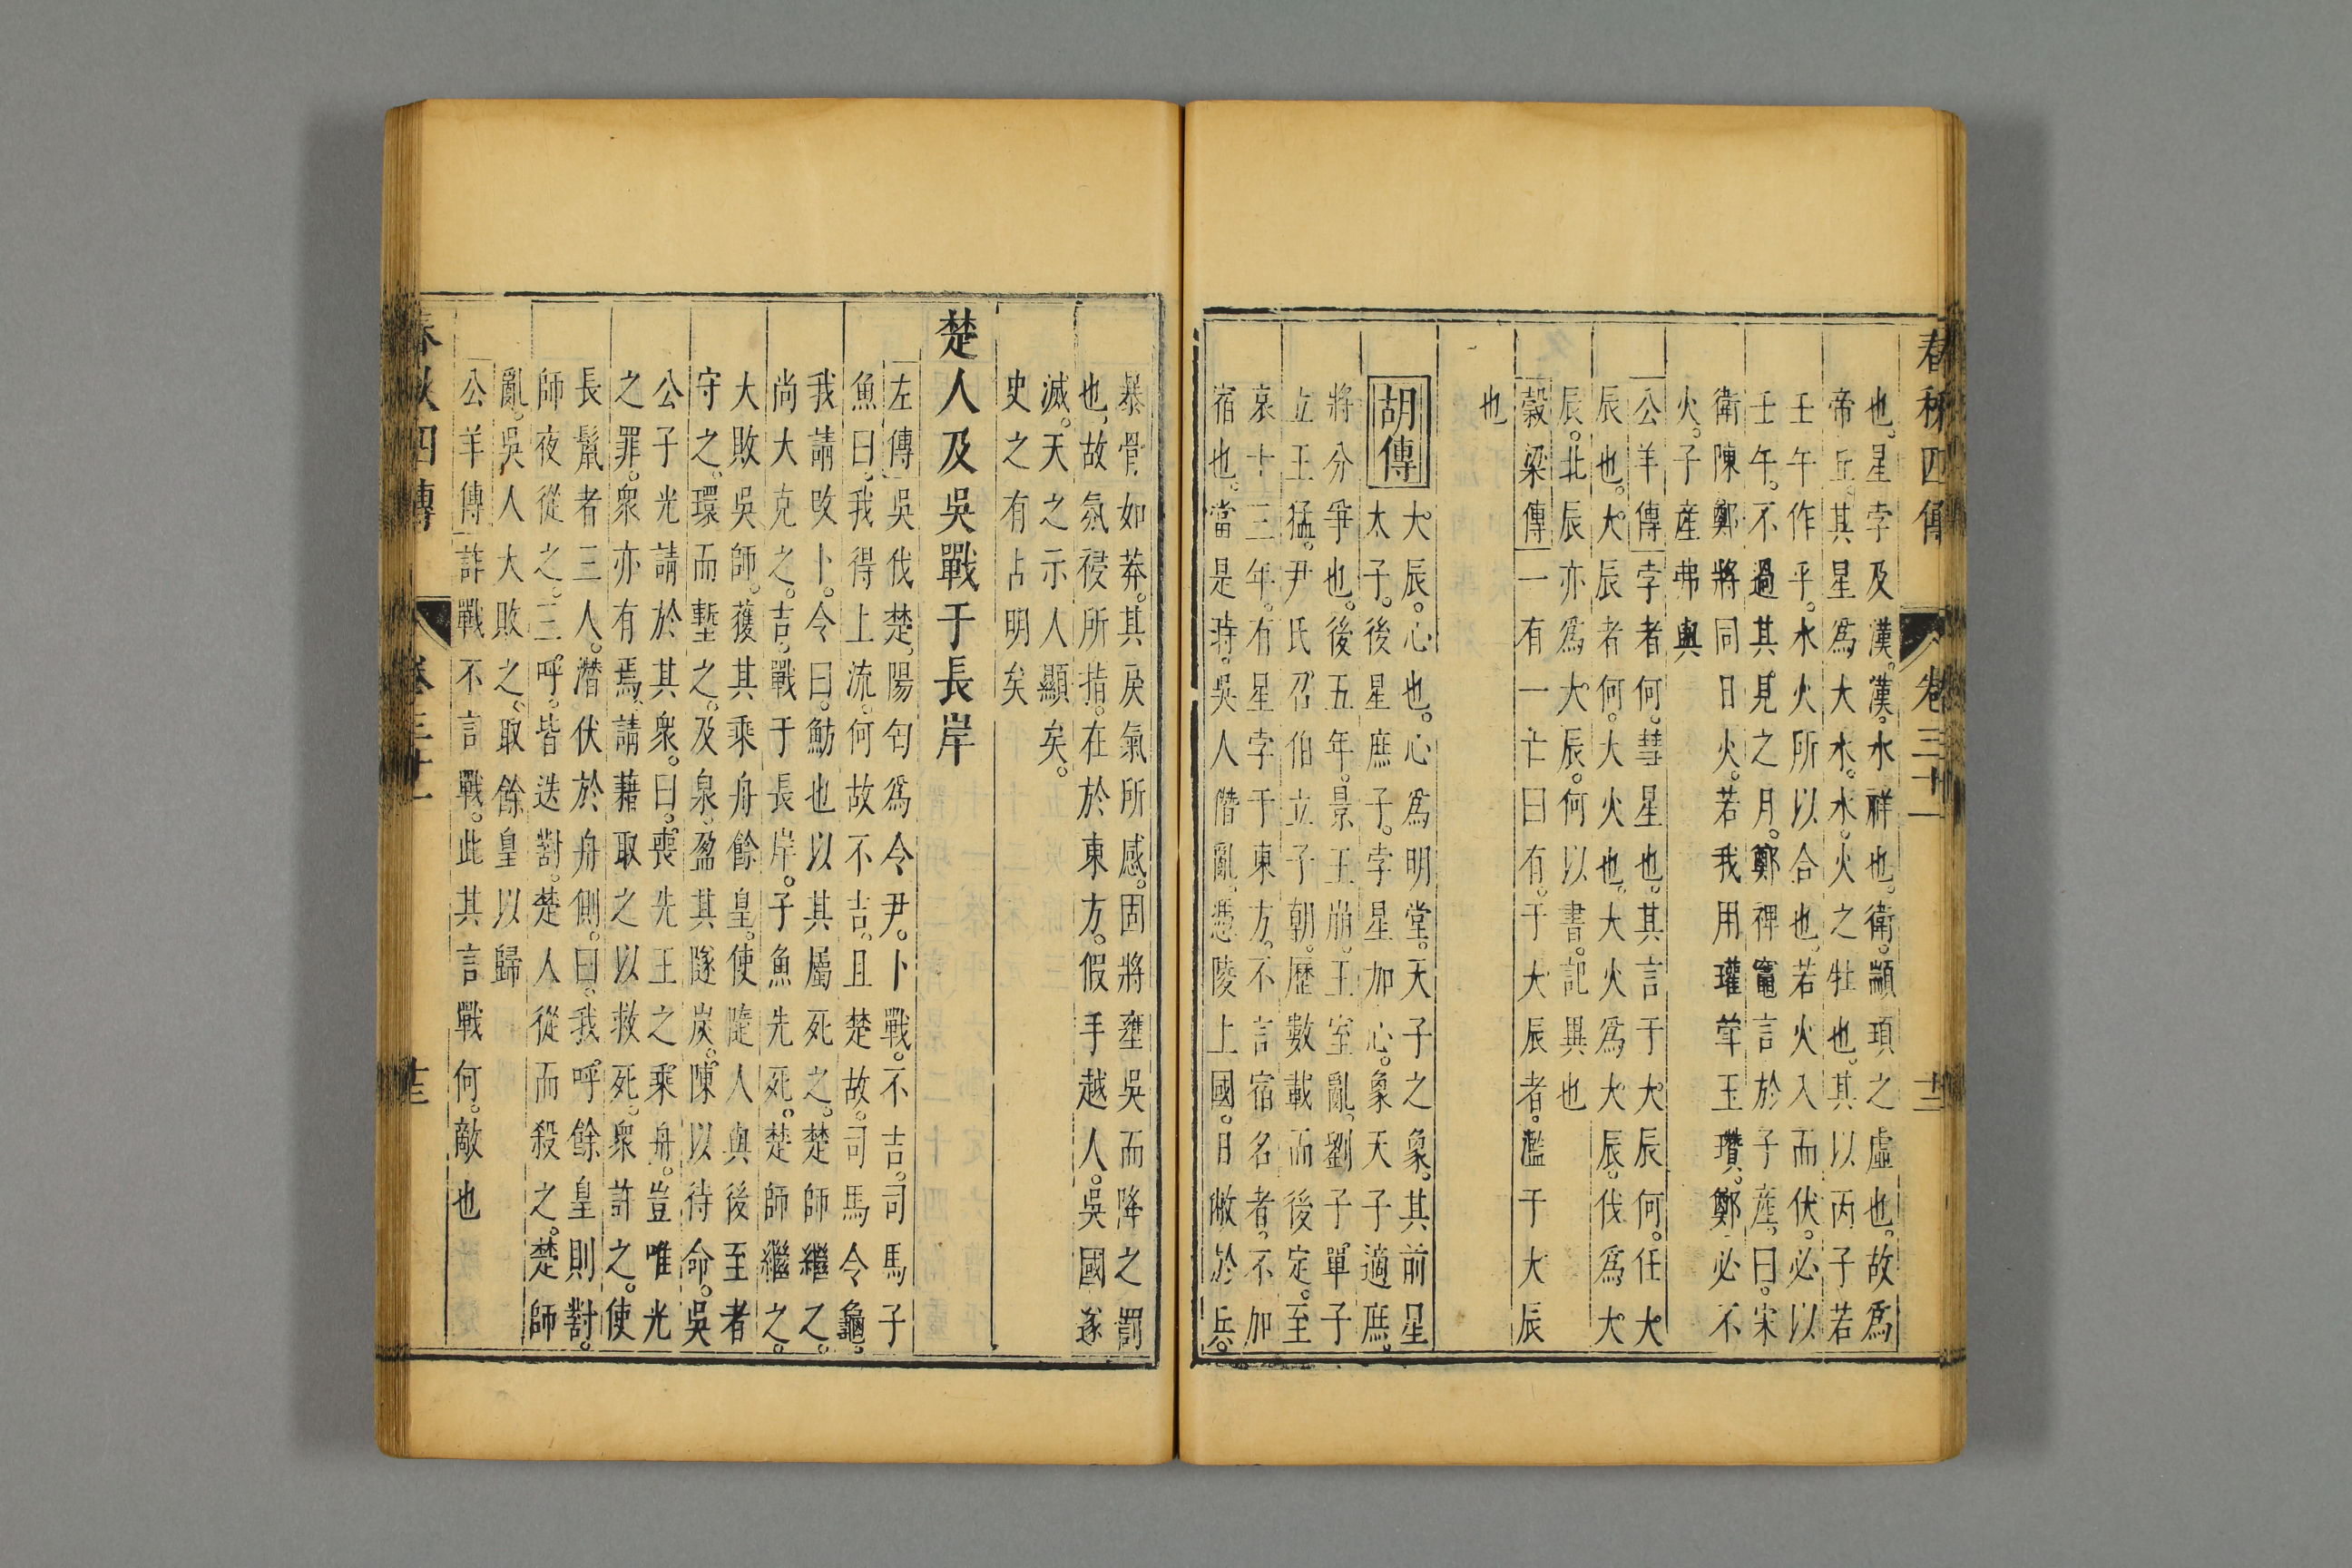 春秋四傳 卷三十一 十二
也。星孛及漢。漢。水祥也。衛。顓頊之虛也。故爲
帝丘。其星爲大水。水。火之牡也。其以丙子若
壬午作乎。水火所以合也。若火入而伏。必以
壬午。不過其見之月。鄭裨竈言於子產。曰。宋
衛陳鄭將同日火。若我用瓘斝玉瓚。鄭必不
火。子產弗與
公羊傳孛者何。彗星也。其言于大辰何。在大
辰也。大辰者何。大火也。大火爲大辰。伐爲大
辰。北辰亦爲大辰。何以書。記異也
穀梁傳一有一亡曰有。于大辰者。濫于大辰
也
胡傳大辰。心也。心爲明堂。天子之象。其前星
太子。後星庶子。孛星加心。象天子適庶。
將分爭也。後五年。景王崩。王室亂。劉子單子
立王猛。尹氏召伯立子朝。歷數載而後定。至
哀十三年。有星孛于東方。不言宿名者。不加
宿也。當是時。吳人僭亂。憑陵上國。日敝於兵。
暴骨如莽。其戾氣所感。固將壅吳而降之罰
也。故氛祲所指。在於東方。假手越人。吳國遂
滅。天之示人顯矣。
史之有占明矣
楚人及吳戰于長岸
左傳吳伐楚。陽匄爲令尹。卜戰。不吉。司馬子
魚曰。我得上流。何故不吉。且楚故。司馬令龜。
我請改卜。令曰。魴也以其屬死之。楚師繼之。
尚大克之。吉。戰于長岸。子魚先死。楚師繼之。
大敗吳師。獲其乘舟餘皇。使隨人與後至者
守之。環而塹之。及泉。盈其隧炭。陳以待命。吳
公子光請於其衆。曰。喪先王之乘舟。豈唯光
之罪。衆亦有焉。請藉取之以救死。衆許之。使
長鬣者三人。潛伏於舟側。曰。我呼餘皇則對。
師夜從之。三呼。皆迭對。楚人從而殺之。楚師
亂。吳人大敗之。取餘皇以歸
公羊傳詐戰不言戰。此其言戰何。敵也
春秋四傳 卷三十一 十三